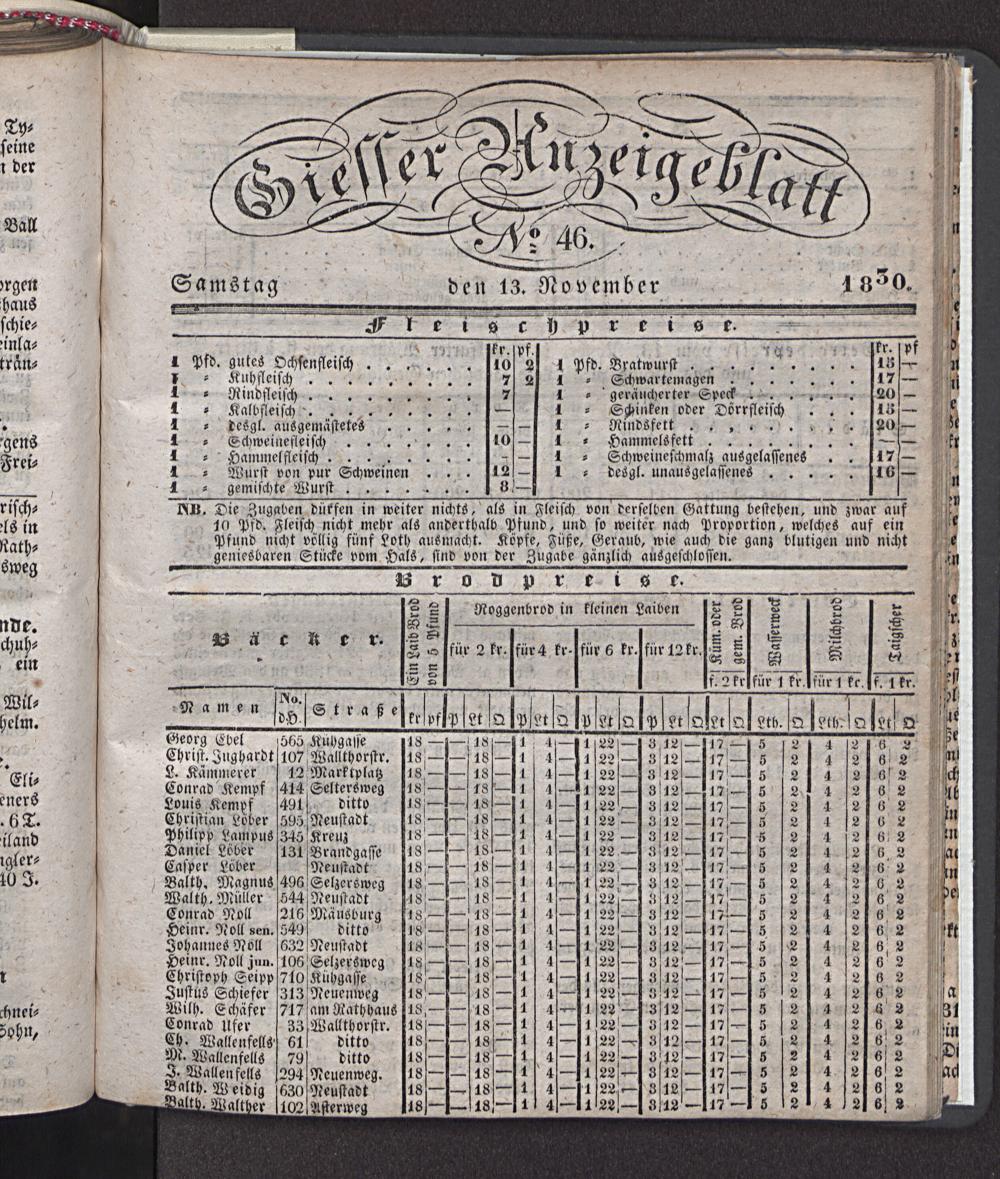 Giesser Anzeigeblatt
No. 46.
Samstag den 13. November 1830.
Fleischpreise.
kr. pf.
1 Pfd. gutes Ochsenfleisch 10 2
1 „ Kuhfleisch 7 2
1 „ Rindfleisch 7
1 „ Kalbfleisch —
1 „ desgl. ausgemästetes — —
1 „ Schweinefleisch 10 —
1 „ Hammelfleisch — —
1 „ Wurst von pur Schweinen 12 —
1 „ gemischte Wurst 8 —
kr. pf
1 Pfd. Bratwurst 15 —
1 „ Schwartemagen 17 —
1 „ geräucherter Speck 20 —
1 „ Schinken oder Dörrfleisch 15 —
1 „ Rindsfett 20 —
1 „ Hammelsfett — —
1 „ Schweineschmalz ausgelassenes 17 —
1 „ desgl. unausgelassenes 16 —
NB. Die Zugaben dürfen in weiter nichts, als in Fleisch von derselben Gattung bestehen, und zwar auf
10 Pfd. Fleisch nicht mehr als anderthalb Pfund, und so weiter nach Proportion, welches auf ein
Pfund nicht völlig fünf Loth ausmacht. Köpfe, Füße, Geraub, wie auch die ganz blutigen und nicht
geniesbaren Stücke vom Hals, sind von der Zugabe gänzlich ausgeschlossen.
Brodpreise.
Bäcker.
Ein Laib Brod von 5 Pfund
Roggenbrod in kleinen Laiben
für 2 kr. für 4 kr. für 6 kr. für 12 kr.
Küm. oder gem. Brod f. 2 kr
Wasserweck für 1 kr.
Milchbrod für 1 kr.
Taigscher f. 1 kr.
Namen No. d.H. Straße kr pf P Lt Q P Lt Q P Lt Q P Lt Q Lt Q Lth. Q Lth. Q Lt Q
Georg Ebel 565 Kühgasse 18 — — 18 — 1 4 — 1 22 — 3 12 — 17 — 5 2 4 2 6 2
Christ. Jughardt 107 Wallthorstr. 18 — — 18 — 1 4 — 1 22 — 3 12 — 17 — 5 2 4 2 6 2
L. Kämmerer 12 Marktplatz 18 — — 18 — 1 4 — 1 22 — 3 12 — 17 — 5 2 4 2 6 2
Conrad Kempf 414 Seltersweg 18 — — 18 — 1 4 — 1 22 — 3 12 — 17 — 5 2 4 2 6 2
Louis Kempf 491 ditto 18 — — 18 — 1 4 — 1 22 — 3 12 — 17 — 5 2 4 2 6 2
Christian Löber 595 Neustadt 18 — — 18 — 1 4 — 1 22 — 3 12 — 17 — 5 2 4 2 6 2
Philipp Lampus 345 Kreuz 18 — — 18 — 1 4 — 1 22 — 3 12 — 17 — 5 2 4 2 6 2
Daniel Löber 131 Brandgasse 18 — — 18 — 1 4 — 1 22 — 3 12 — 17 — 5 2 4 2 6 2
Casper Löber Neustadt 18 — — 18 — 1 4 — 1 22 — 3 12 — 17 — 5 2 4 2 6 2
Balth. Magnus 496 Selzersweg 18 — — 18 — 1 4 — 1 22 — 3 12 — 17 — 5 2 4 2 6 2
Walth. Müller 544 Neustadt 18 — — 18 — 1 4 — 1 22 — 3 12 — 17 — 5 2 4 2 6 2
Conrad Noll 216 Mäusburg 18 — — 18 — 1 4 — 1 22 — 3 12 — 17 — 5 2 4 2 6 2
Heinr. Noll sen. 549 ditto 18 — — 18 — 1 4 — 1 22 — 3 12 — 17 — 5 2 4 2 6 2
Johannes Noll 632 Neustadt 18 — — 18 — 1 4 — 1 22 — 3 12 — 17 — 5 2 4 2 6 2
Heinr. Noll jun. 106 Selzersweg 18 — — 18 — 1 4 — 1 22 — 3 12 — 17 — 5 2 4 2 6 2
Christoph Seipp 710 Kühgasse 18 — — 18 — 1 4 — 1 22 — 3 12 — 17 — 5 2 4 2 6 2
Justus Schiefer 313 Neuenweg 18 — — 18 — 1 4 — 1 22 — 3 12 — 17 — 5 2 4 2 6 2
Wilh. Schäfer 717 am Rathhaus 18 — — 18 — 1 4 — 1 22 — 3 12 — 17 — 5 2 4 2 6 2
Conrad Ufer 33 Wallthorstr. 18 — — 18 — 1 4 — 1 22 — 3 12 — 17 — 5 2 4 2 6 2
Ch. Wallenfells 61 ditto 18 — — 18 — 1 4 — 1 22 — 3 12 — 17 — 5 2 4 2 6 2
M. Wallenfells 79 ditto 18 — — 18 — 1 4 — 1 22 — 3 12 — 17 — 5 2 4 2 6 2
J. Wallenfells 294 Neuenweg. 18 — — 18 — 1 4 — 1 22 — 3 12 — 17 — 5 2 4 2 6 2
Balth. Weidig 630 Neustadt 18 — — 18 — 1 4 — 1 22 — 3 12 — 17 — 5 2 4 2 6 2
Balth. Walther 102 Asterweg 18 — — 18 — 1 4 — 1 22 — 3 12 — 17 — 5 2 4 2 6 2